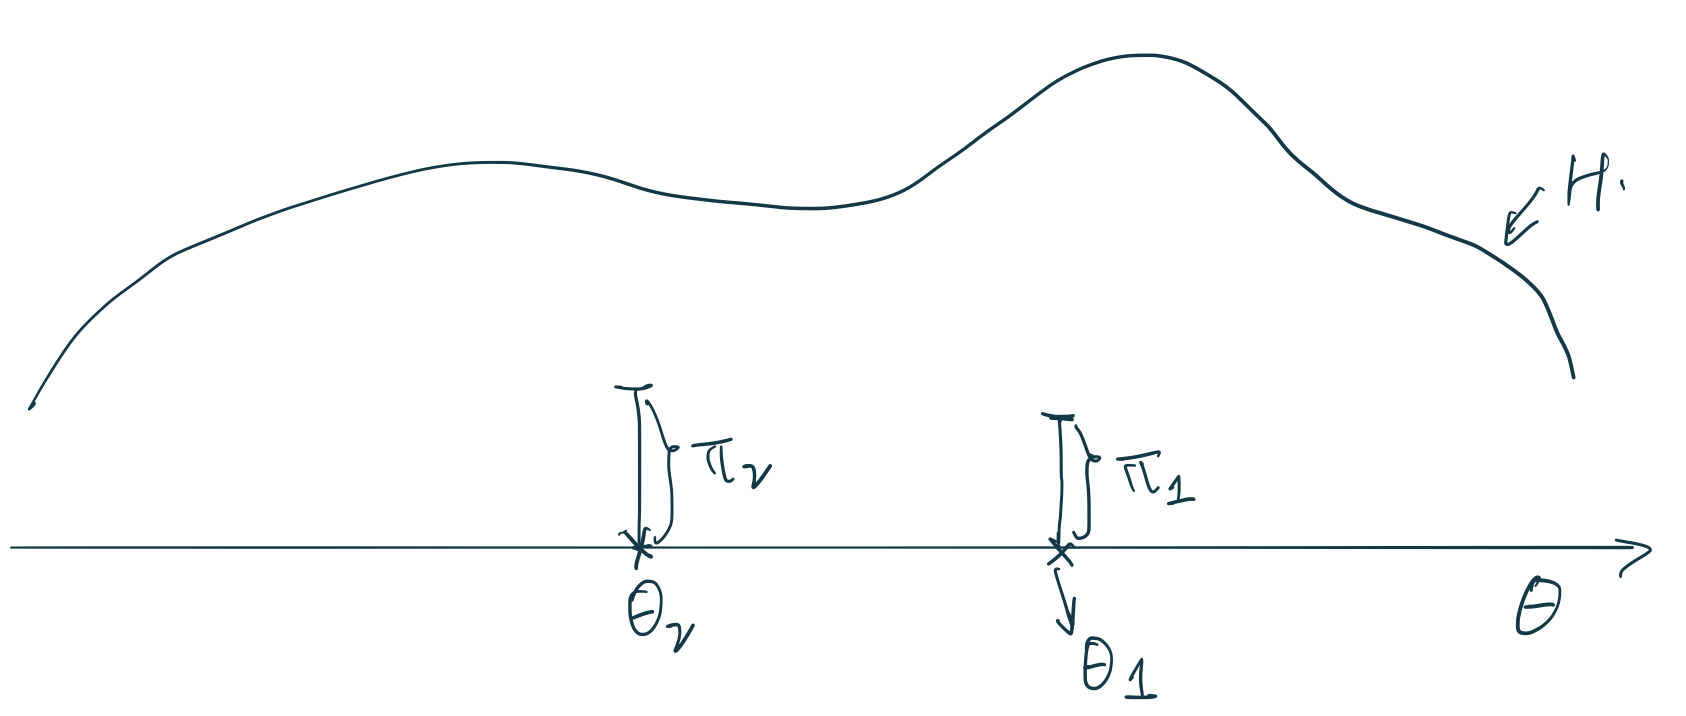 H.
π₂
π₁
θ₂
θ
θ₁